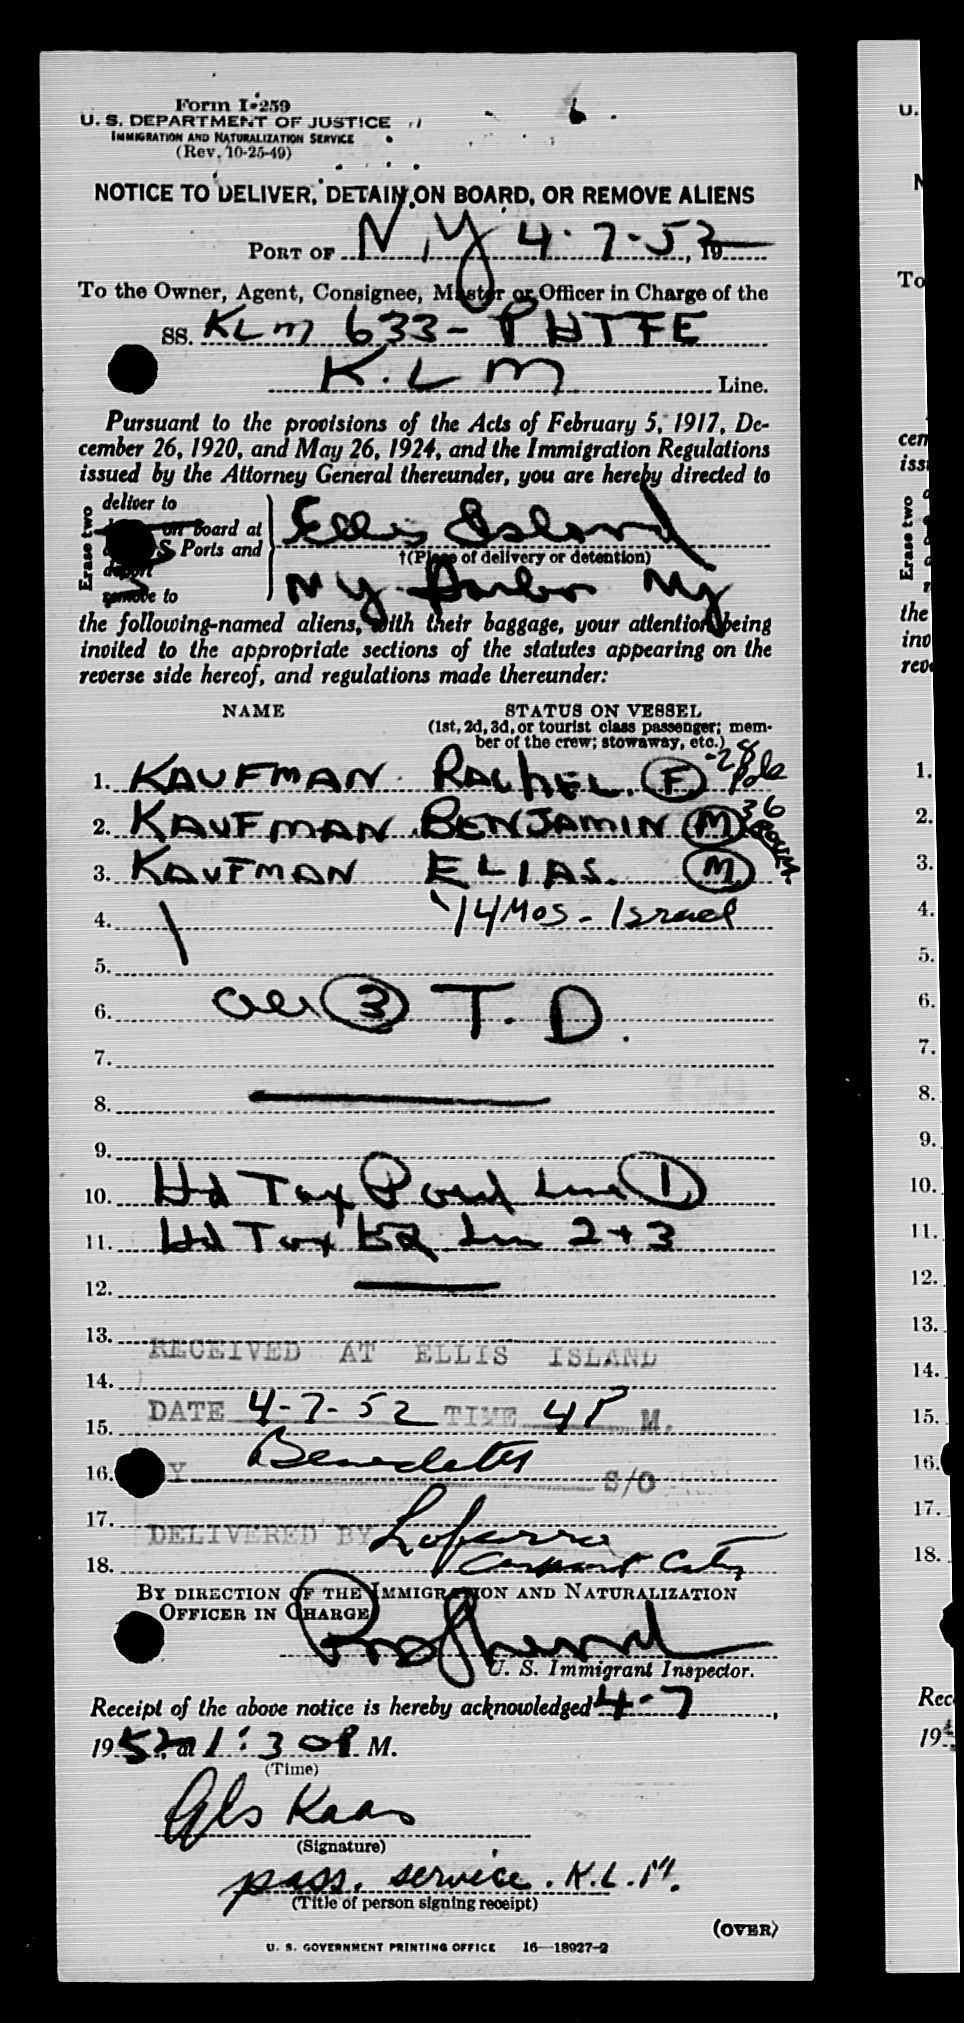 Form I-259
U. S. DEPARTMENT OF JUSTICE
IMMIGRATION AND NATURALIZATION SERVICE
(Rev. 10-25-49)
NOTICE TO DELIVER, DETAIN ON BOARD, OR REMOVE ALIENS
PORT OF N.Y 4-7-52, 19
To the Owner, Agent, Consignee, Master or Officer in Charge of the
SS. KLM 633- PHTFE
K. L M Line.
Pursuant to the provisions of the Acts of February 5, 1917, De-
cember 26, 1920, and May 26, 1924, and the Immigration Regulations
issued by the Attorney General thereunder, you are hereby directed to
Erase two
deliver to
on board at
S Ports and
deport
remove to
Ellis Island
†(Place of delivery or detention)
NY Harbor NY
the following-named aliens, with their baggage, your attention being
invited to the appropriate sections of the statutes appearing on the
reverse side hereof, and regulations made thereunder:
NAME STATUS ON VESSEL
(1st, 2d, 3d, or tourist class passenger; mem-
ber of the crew; stowaway, etc.)
1. KAUFMAN RACHEL. F -28 Pole
2. KAUFMAN BENJAMIN M 36 ROUM.
3. KAUFMAN ELIAS. M
4. 14 Mos - Israel
5.
6. all 3 T. D.
7.
8.
9.
10. Hd Tax Paid Line 1
11. Hd Tax Line 2 + 3
12.
13.
RECEIVED AT ELLIS ISLAND
14.
DATE 4-7-52 TIME 4 P M.
15.
16. Y S/O
17.
DELIVERED BY
18.
BY DIRECTION OF THE IMMIGRATION AND NATURALIZATION
OFFICER IN CHARGE
U. S. Immigrant Inspector.
Receipt of the above notice is hereby acknowledged 4-7,
1952, at 1:30 P. M.
(Time)
Kaas
(Signature)
pass. service. K.L.M.
(Title of person signing receipt)
(OVER)
U. S. GOVERNMENT PRINTING OFFICE 16—18927-2
U.
N
To
cen
issu
Erase two
the
inv
reve
1.
2.
3.
4.
5.
6.
7.
8.
9.
10.
11.
12.
13.
14.
15.
16.
17.
18.
Rec
19